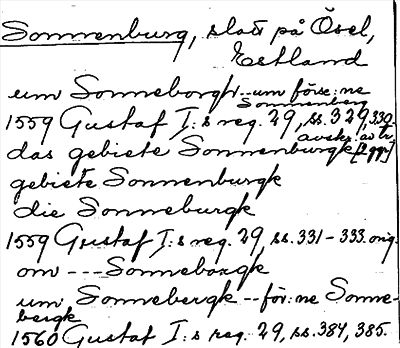 Sonnenburg, slott på Ösel,
Estland
um Sonneborgh -- um förse:ne
Sonnenberg
1559 Gustaf I:s reg. 29, ss. 329, 330.
avskr. av tr.
das gebiete Sonnenburgk [2 ggr]
gebiete Sonnenburgk
die Sonneburgk
1559 Gustaf I:s reg. 29, ss. 331-333. orig.
om --- Sonneborgk
um Sonnebergk -- för:ne Sonne-
bergk
1560 Gustaf I:s reg. 29, ss. 384, 385.